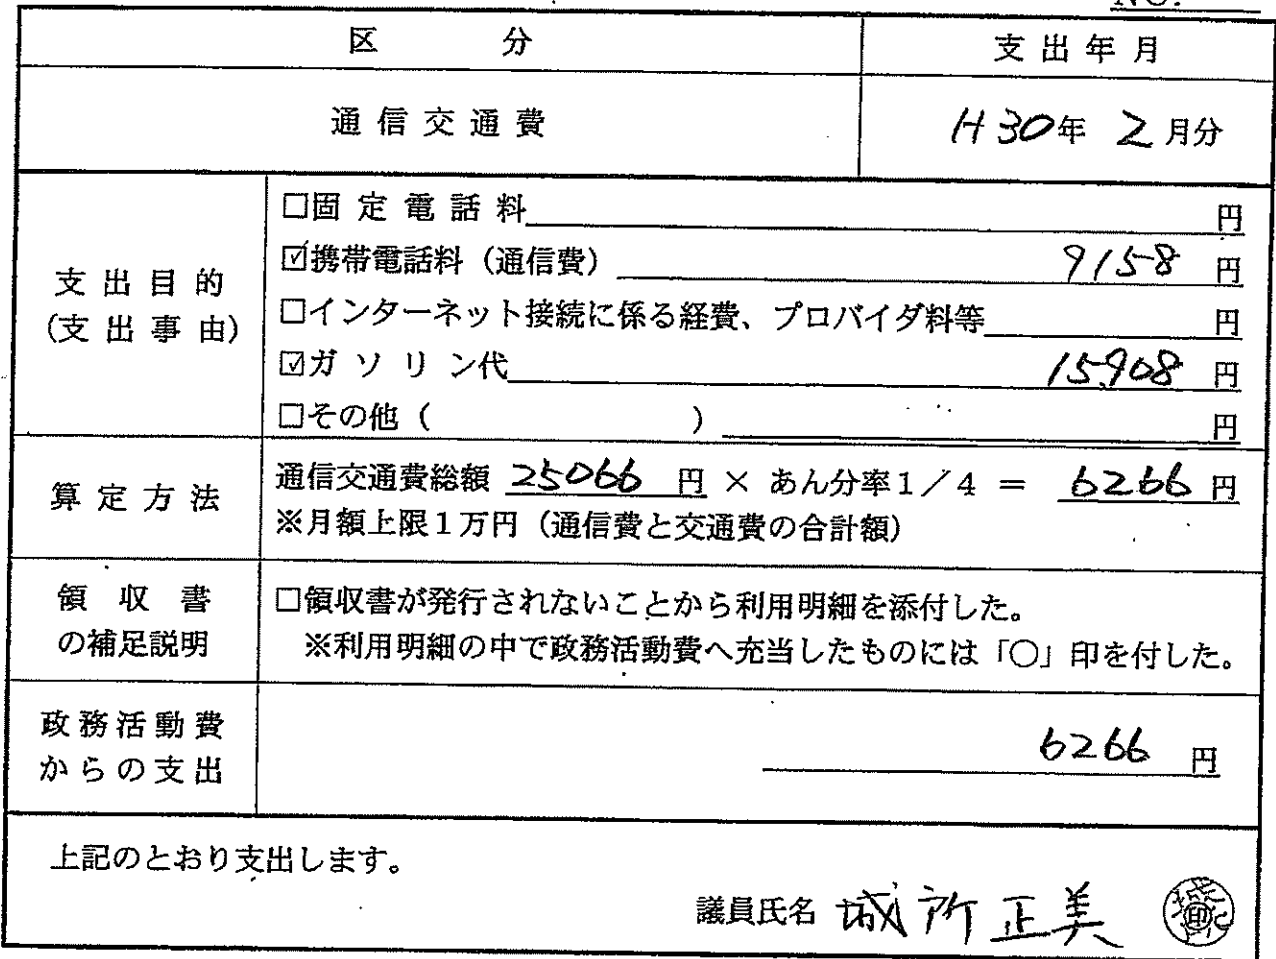 NO.
区 分
支出年月
通信交通費
H30年 2月分
支出目的
(支出事由)
☐固定電話料 円
☑携帯電話料（通信費） 9158 円
☐インターネット接続に係る経費、プロバイダ料等 円
☑ガソリン代 15,908 円
☐その他（ ） 円
算定方法
通信交通費総額 25066 円 × あん分率1／4 ＝ 6266 円
※月額上限1万円（通信費と交通費の合計額）
領収書
の補足説明
☐領収書が発行されないことから利用明細を添付した。
※利用明細の中で政務活動費へ充当したものには「○」印を付した。
政務活動費
からの支出
6266 円
上記のとおり支出します。
議員氏名 城所正美
印